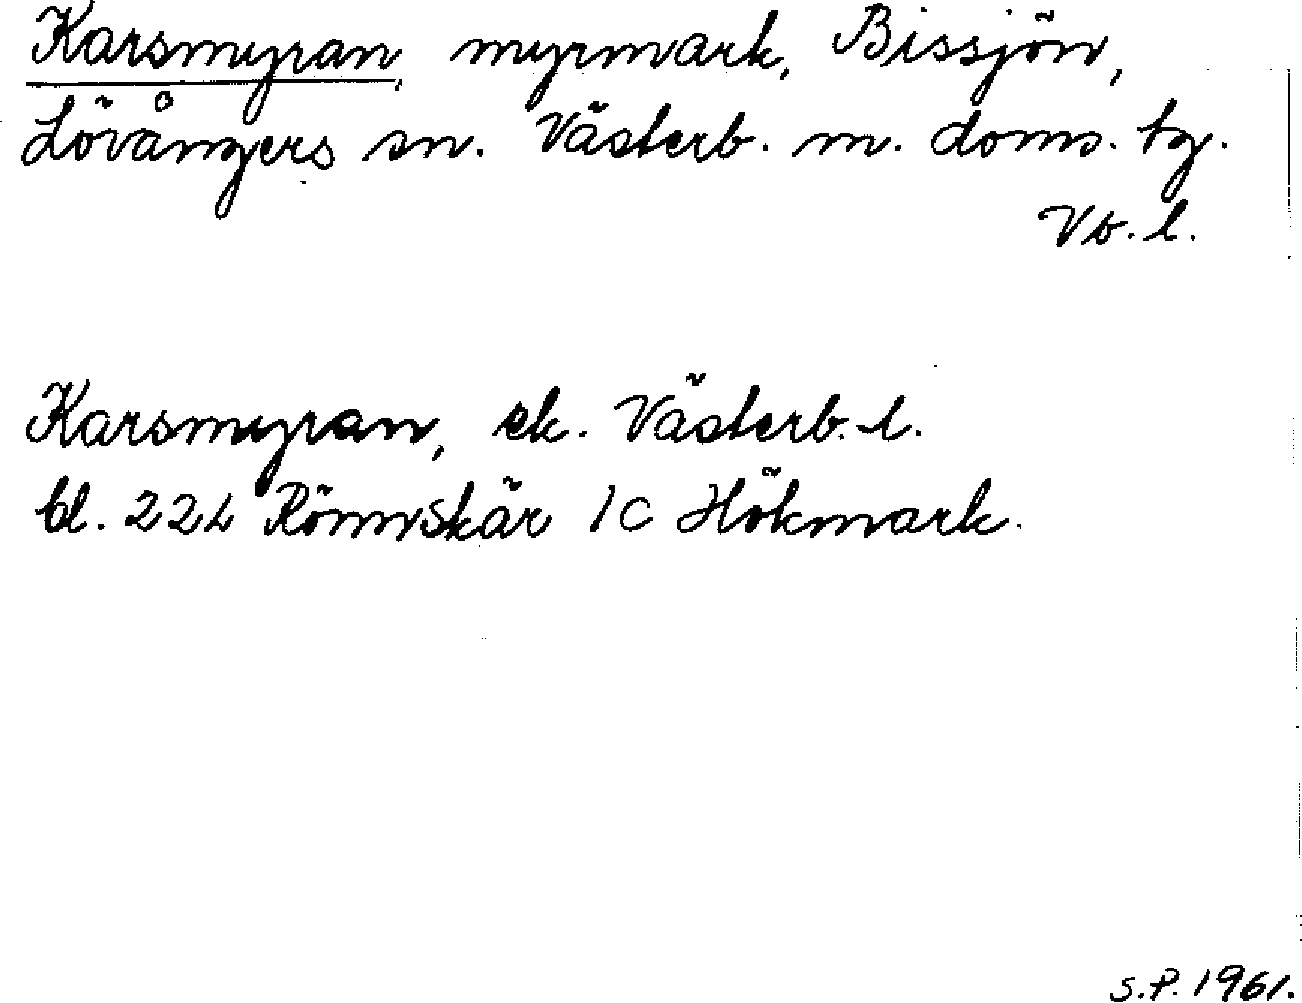 Karsmyran, myrmark, Bissjön,
Lövångers sn. Västerb. m. doms. tg.
Vb. l.
Karsmyran, ek. Västerb. l.
bl. 224 Rönnskär 1c Hökmark.
S.P. 1961.